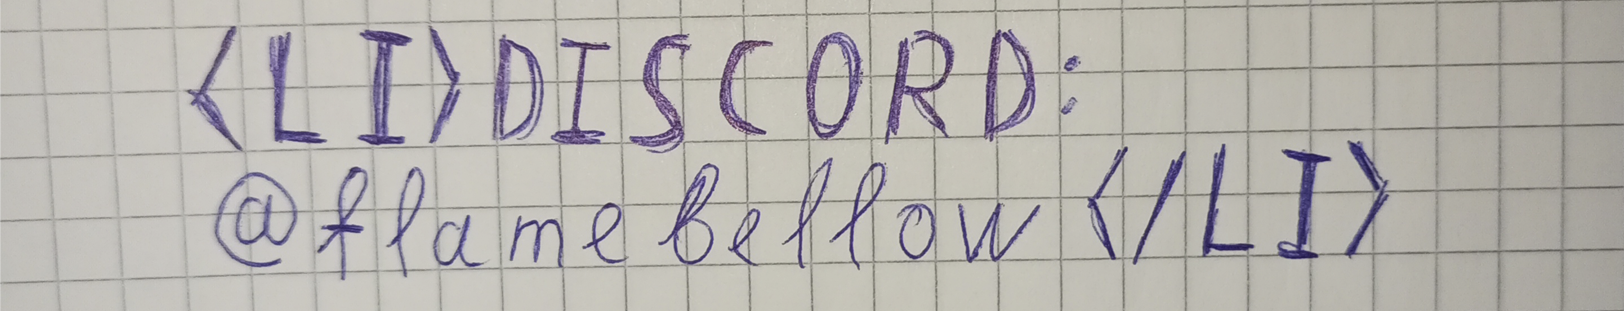 <LI>DISCORD:
@flamebellow </LI>